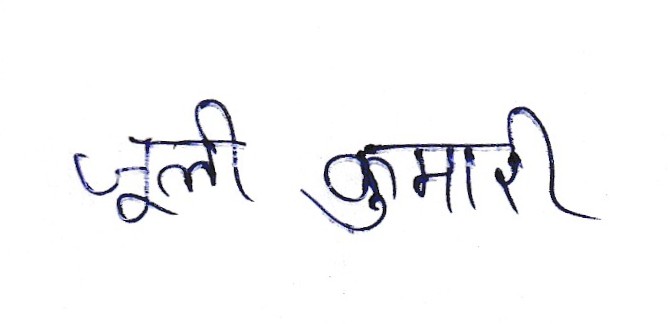 जूली कुमारी